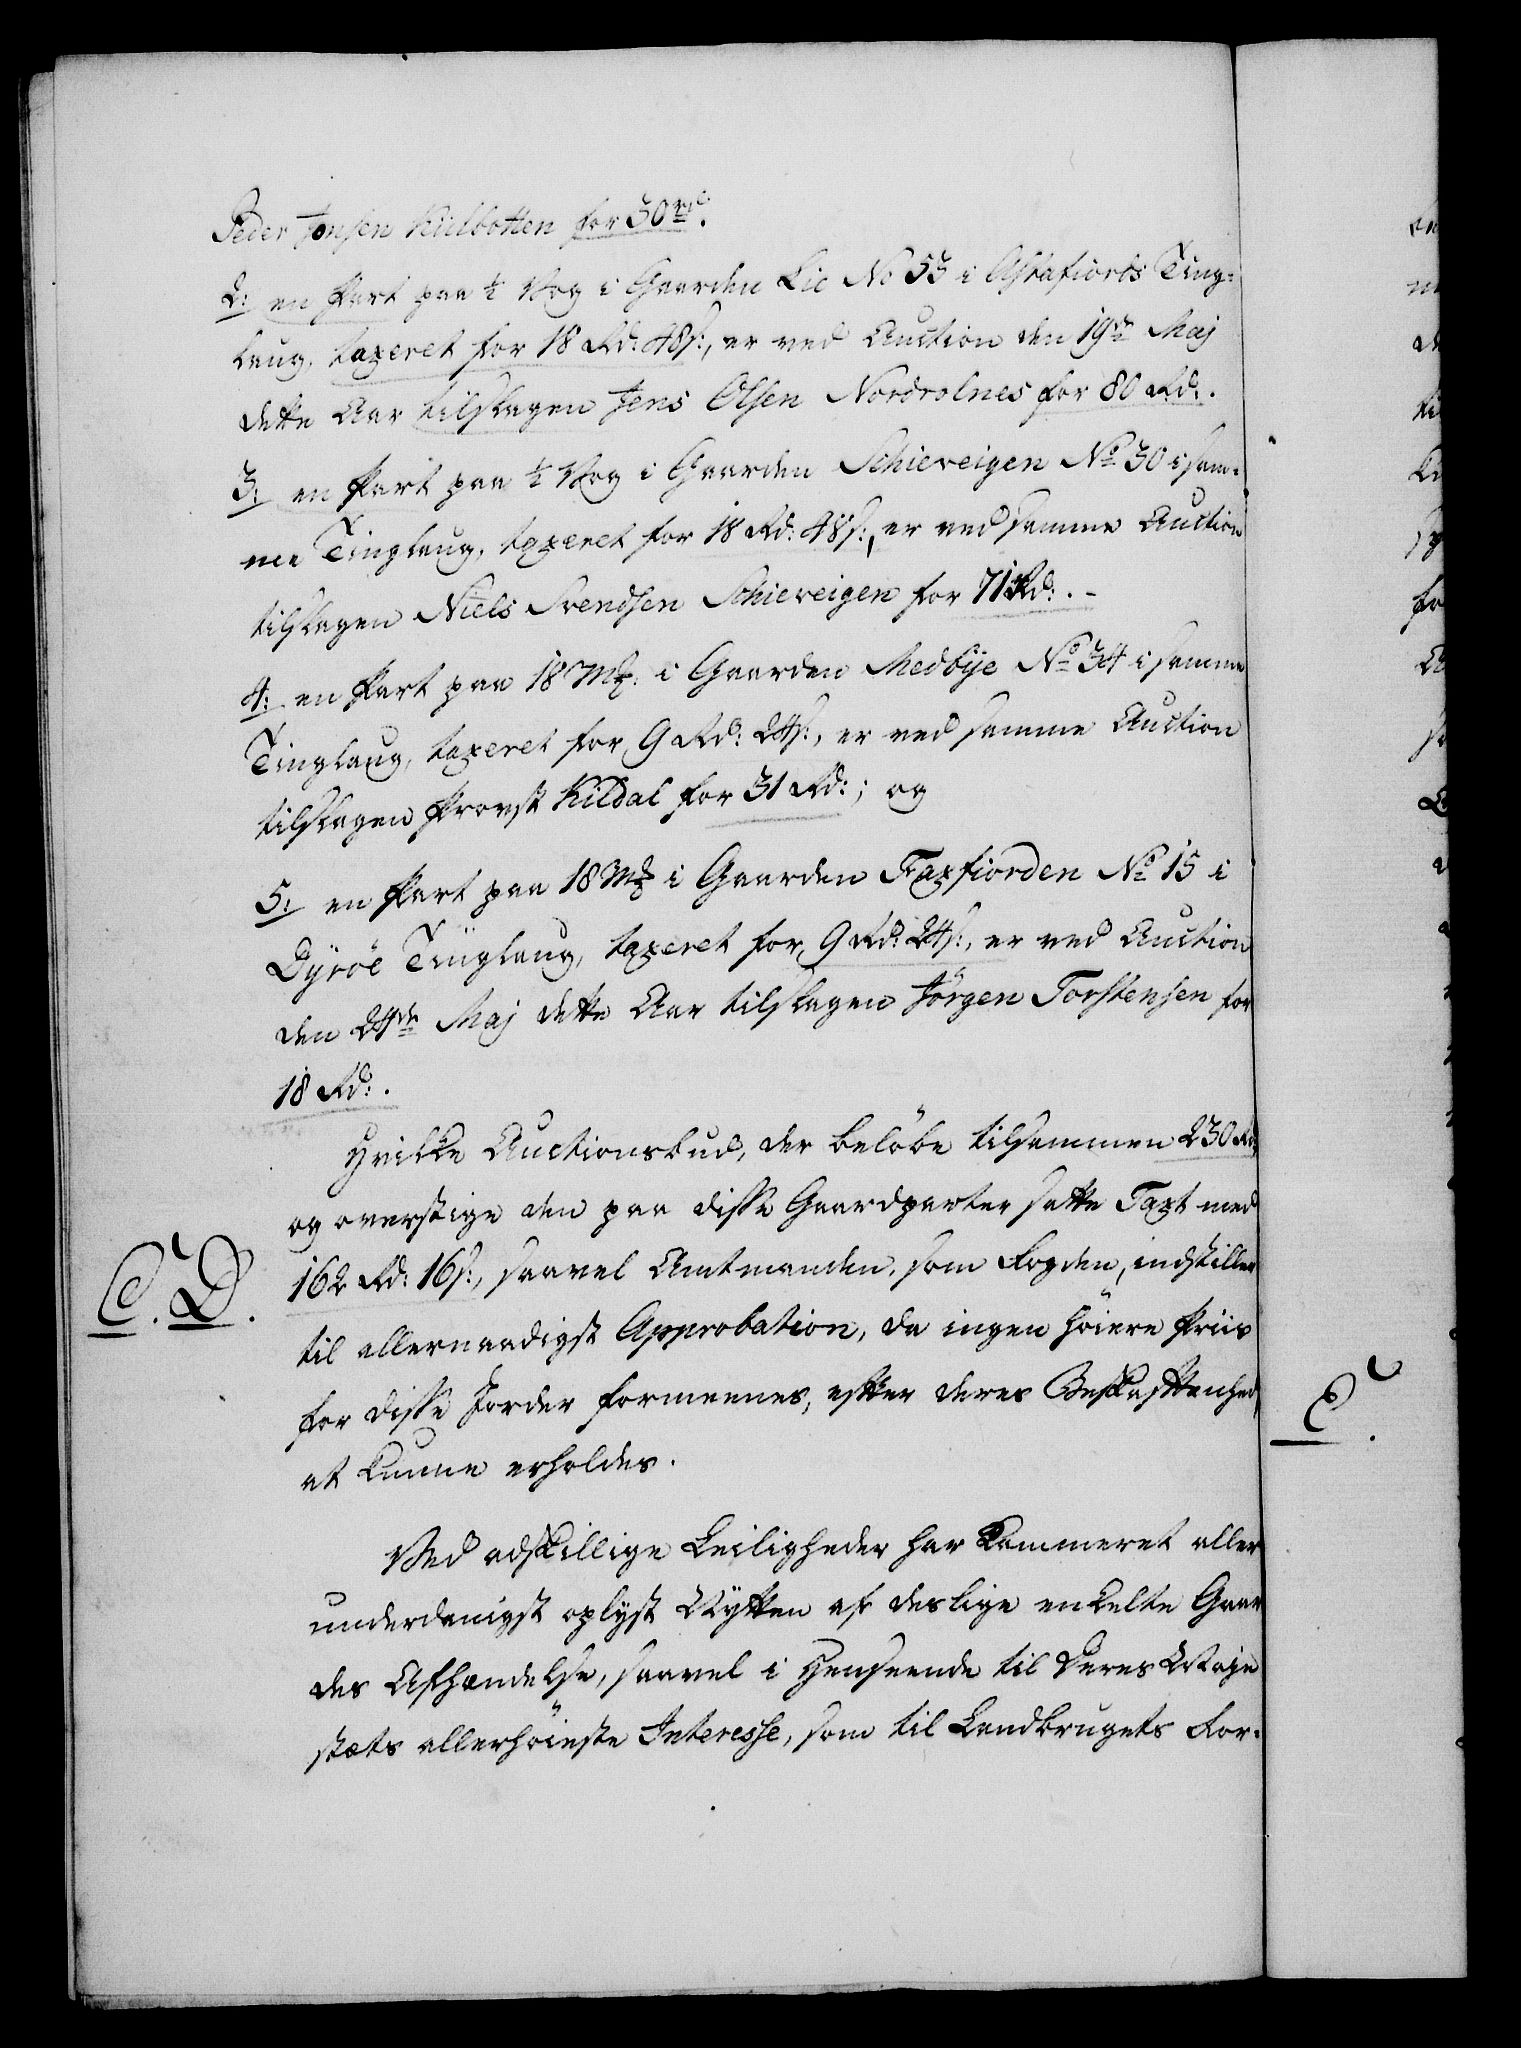 Peder Jonsen Kiilbotten for 30 rd.
2: en Part paa ½ Vog i Gaarden Lie No 53 i Astafiords Ting-
laug, taxeret for 18 Rd: 48 s:, er ved Auction den 19de Maj
dette Aar tilslagen Jens Olsen Nordrolnes for 80 Rd:.
3: en Part paa ½ Vog i Gaarden Schieveigen No 30 i sam-
me Tinglaug, taxeret for 18 Rd: 48 s:, er ved samme Auction
tilslagen Niels Svendsen Schieveigen for 71 Rd:. -
4: en Part paa 18 Mk: i Gaarden Medbÿe No 34 i samme
Tinglaug, taxeret for 9 Rd: 24 s:, er ved samme Auction
tilslagen Provst Kildal for 31 Rd:; og
5: en Part paa 18 Mk i Gaarden Faxfiorden No 15 i
Dÿröe Tinglaug, taxeret for 9 Rd: 24 s:, er ved Auction
den 24de Maj dette Aar tilslagen Jörgen Torstensen for
18 Rd:.
Hvilke Auctionsbud, der belöbe tilsammen 230 Rd:
og overstige den paa disse Gaardparter satte Taxt med
162 Rd: 16 s:, saavel Amtmanden, som Fogden, indstiller
C. D.
til allernaadigst Approbation, da ingen höiere Priis
for disse Jorder formeenes, efter deres Beskaffenhed,
E.
at kunne erholdes.
Ved adskillige Leiligheder har Kammeret aller
underdanigst oplyst Nytten af deslige enkelte Gaar
des Afhændelse, saavel i Henseende til Deres Maje
stæts allerhöieste Interesse, som til Landbrugets For-